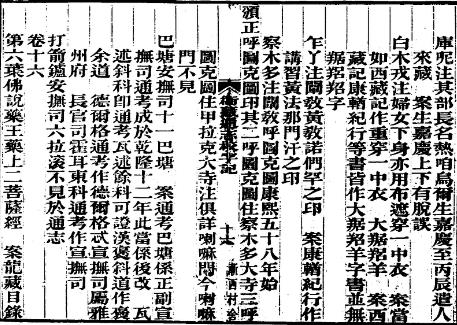 庫呢注其部長名熱咱烏爾生嘉慶至丙辰遣人
來藏　案生嘉慶上下有脫誤
白木戎注婦女下身亦用布遮穿一中衣　案當
如西藏記作重穿一中衣　大䍮䍽羊　案西
藏記康輶紀行等書皆作大䍮䍽羊字書並無
䍮䍽字
乍丫注闡教黃教諾們罕之印　案康輶紀行作
講習黃法那門汗之印
察木多注闡教呼圖克圖康熙五十八年始
頒正呼圖克圖印其二呼圖克圖住察木多大寺三呼
衛藏通志校字記
十六
漸西村舍
圖克圖住甲拉克大寺注俱詳喇嘛門今喇嘛
門不見
巴塘安撫司十一巴塘　案通考巴塘係正副宣
撫司通考成於乾隆十二年此當係後改　瓦
述斜科卽通考瓦述餘科可證漢褒斜道作褒
余道　德爾格忒通考作德爾格忒宣撫司屬雅
州府　長官司霍耳東科通考作宣撫司
打箭鑪安撫司六拉滾不見於通志
卷十六
第六葉佛說藥王藥上二菩薩經　案龍藏目錄